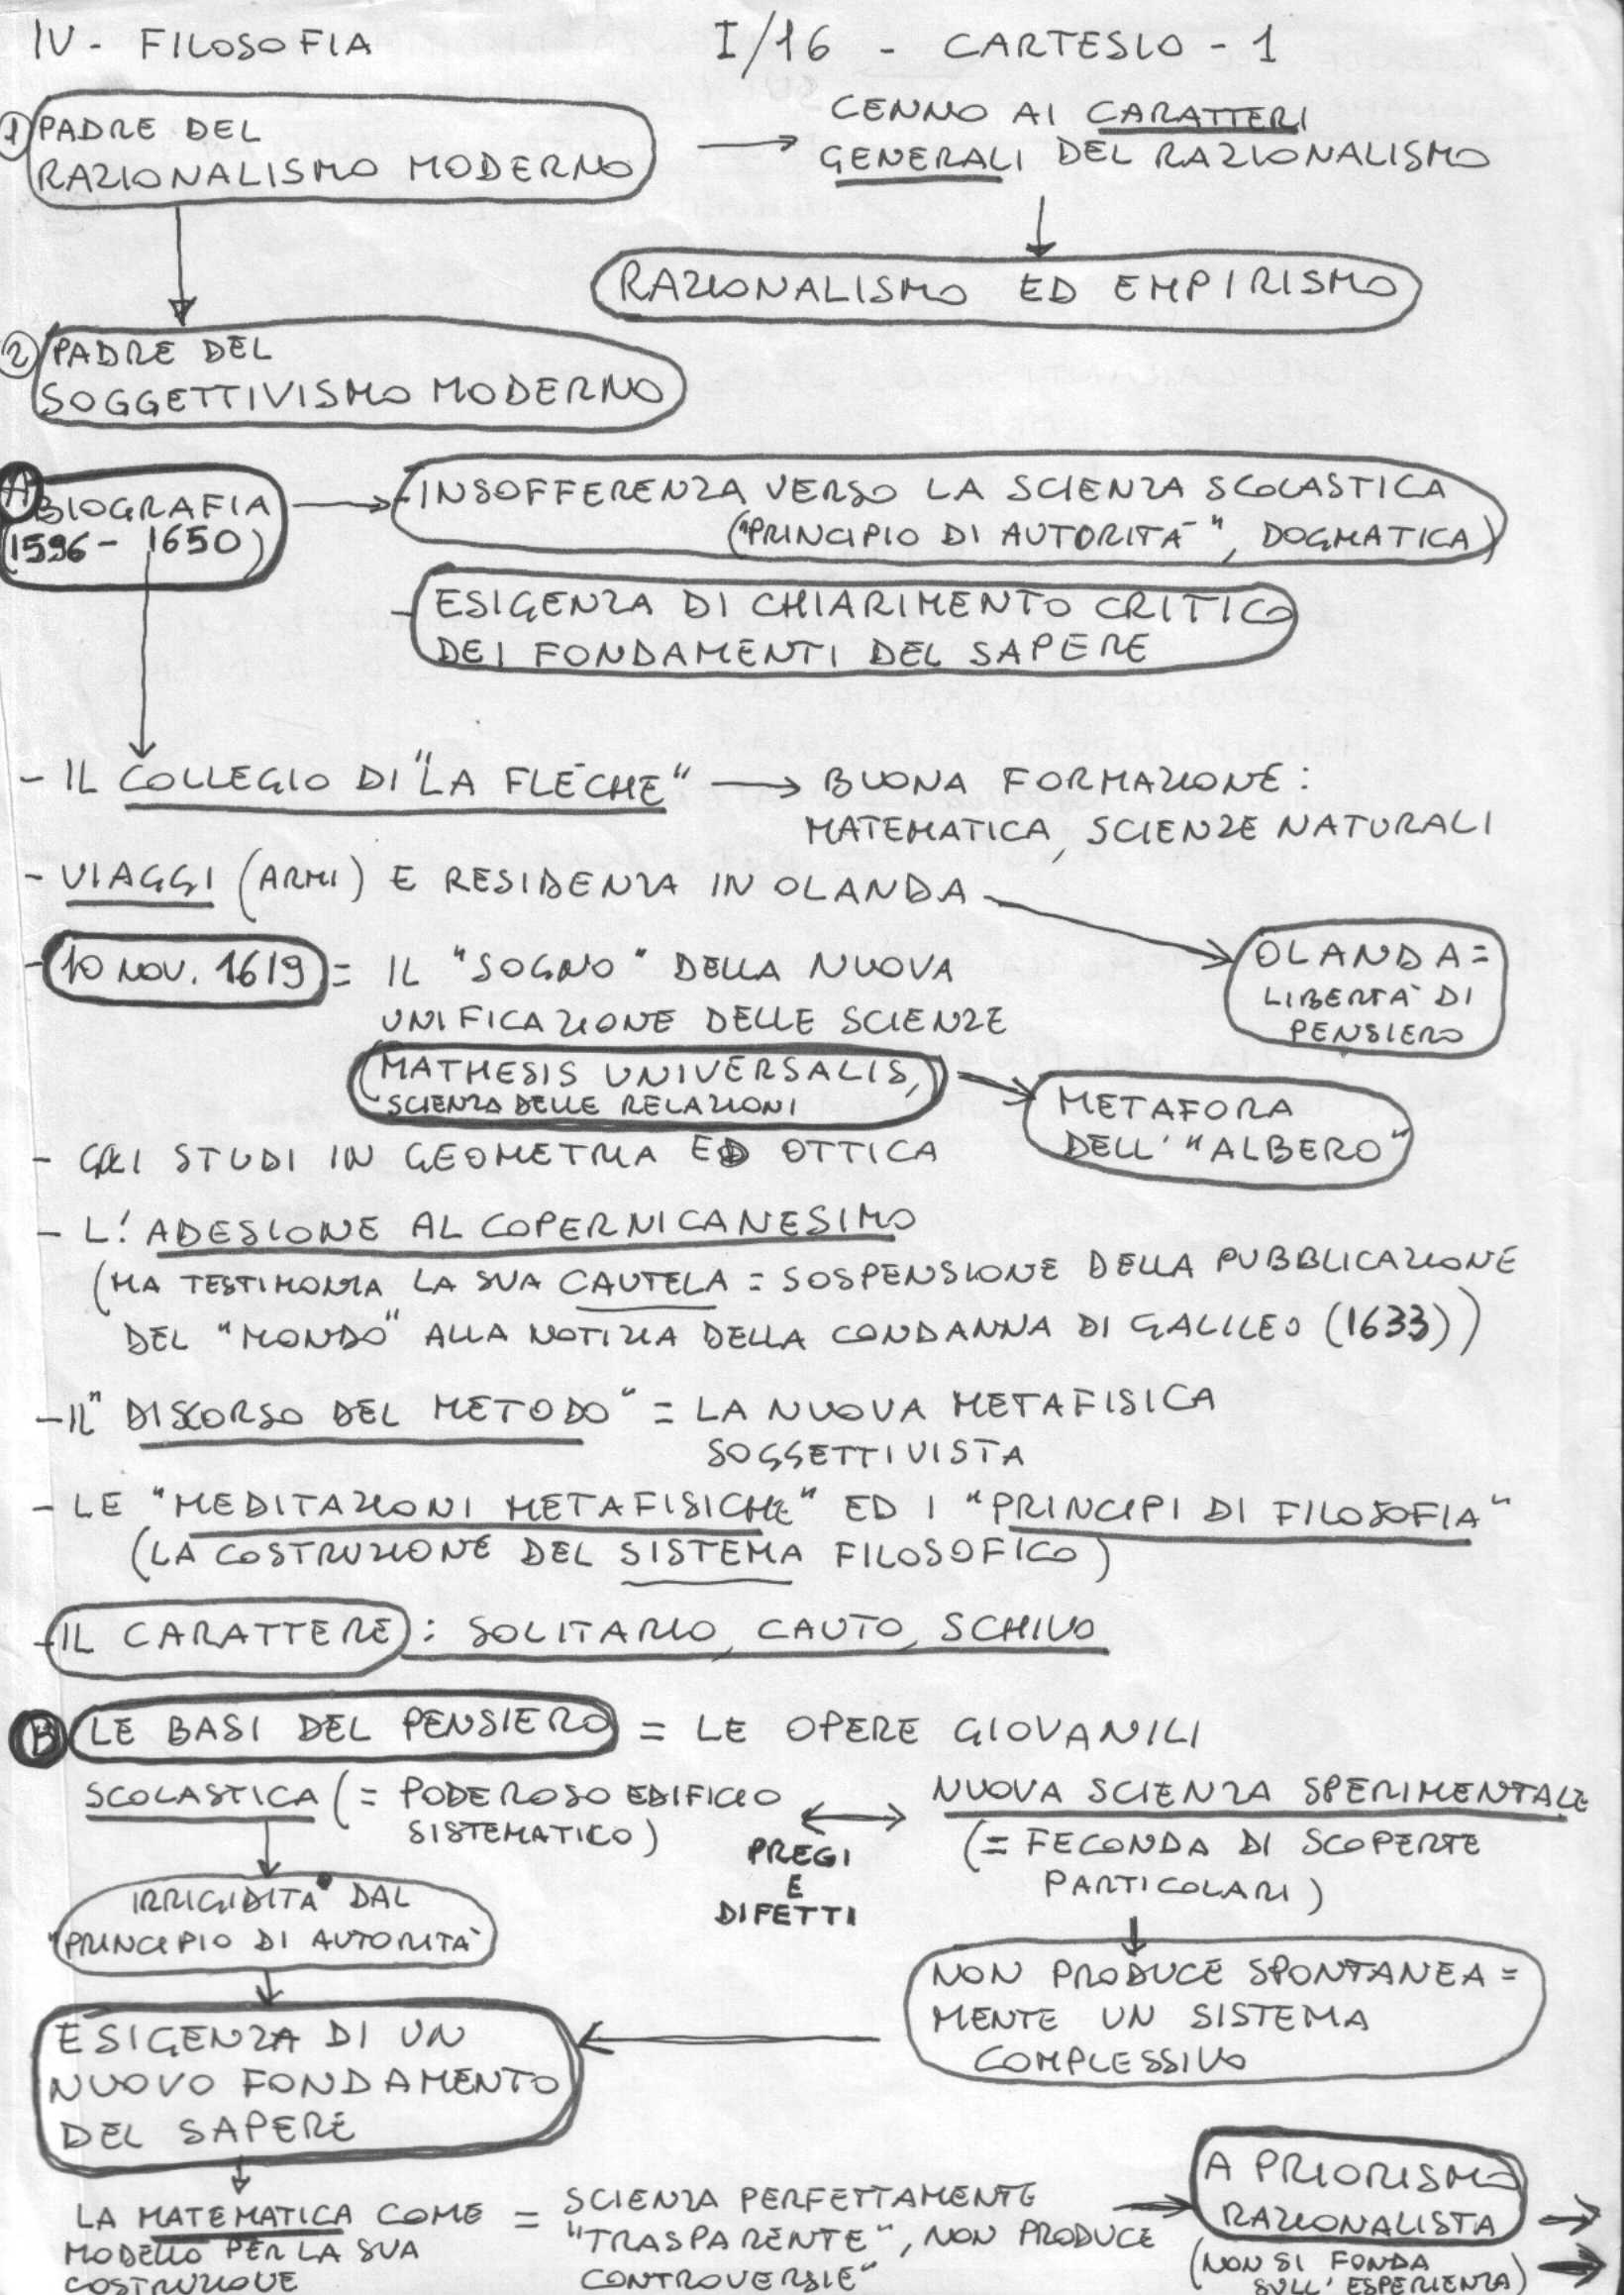 IV - FILOSOFIA
I/16 - CARTESIO - 1
1 PADRE DEL
RAZIONALISMO MODERNO
CENNO AI CARATTERI
GENERALI DEL RAZIONALISMO
RAZIONALISMO ED EMPIRISMO
2 PADRE DEL
SOGGETTIVISMO MODERNO
A BIOGRAFIA
(1596 - 1650)
- INSOFFERENZA VERSO LA SCIENZA SCOLASTICA
("PRINCIPIO DI AUTORITÀ", DOGMATICA)
- ESIGENZA DI CHIARIMENTO CRITICO
DEI FONDAMENTI DEL SAPERE
- IL COLLEGIO DI "LA FLÉCHE"
BUONA FORMAZIONE:
MATEMATICA, SCIENZE NATURALI
- VIAGGI (ARMI) E RESIDENZA IN OLANDA
OLANDA =
LIBERTÀ DI
PENSIERO
- 10 NOV. 1619 = IL "SOGNO" DELLA NUOVA
UNIFICAZIONE DELLE SCIENZE
(MATHESIS UNIVERSALIS,
SCIENZA DELLE RELAZIONI
METAFORA
DELL'"ALBERO"
- GLI STUDI IN GEOMETRIA ED OTTICA
- L'ADESIONE AL COPERNICANESIMO
(MA TESTIMONIA LA SUA CAUTELA = SOSPENSIONE DELLA PUBBLICAZIONE
DEL "MONDO" ALLA NOTIZIA DELLA CONDANNA DI GALILEO (1633))
- IL "DISCORSO DEL METODO" = LA NUOVA METAFISICA
SOGGETTIVISTA
- LE "MEDITAZIONI METAFISICHE" ED I "PRINCIPI DI FILOSOFIA"
(LA COSTRUZIONE DEL SISTEMA FILOSOFICO)
- IL CARATTERE: SOLITARIO, CAUTO, SCHIVO
B LE BASI DEL PENSIERO = LE OPERE GIOVANILI
SCOLASTICA (= PODEROSO EDIFICIO
SISTEMATICO)
PREGI
E
DIFETTI
NUOVA SCIENZA SPERIMENTALE
(= FECONDA DI SCOPERTE
PARTICOLARI)
IRRIGIDITA DAL
"PRINCIPIO DI AUTORITÀ
NON PRODUCE SPONTANEA=
MENTE UN SISTEMA
COMPLESSIVO
ESIGENZA DI UN
NUOVO FONDAMENTO
DEL SAPERE
LA MATEMATICA COME
MODELLO PER LA SUA
COSTRUZIONE
= SCIENZA PERFETTAMENTE
"TRASPARENTE", NON PRODUCE
CONTROVERSIE"
A PRIORISMO
RAZIONALISTA
(NON SI FONDA
SULL'ESPERIENZA)